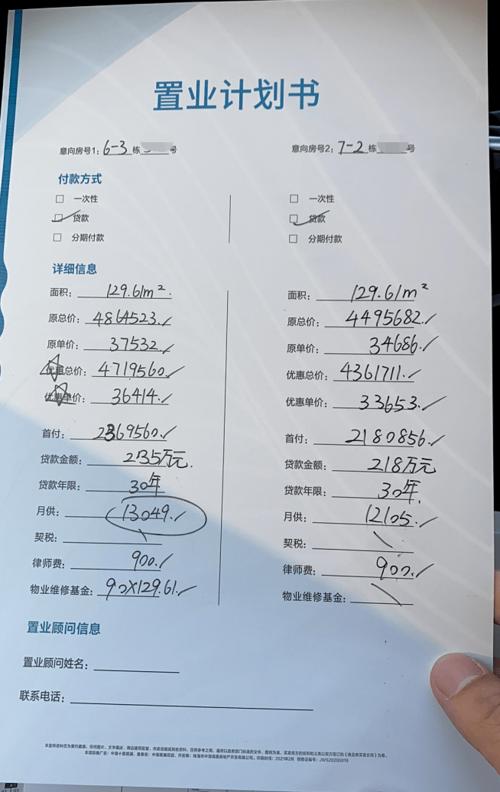 置业计划书
意向房号1：6-3栋 号 意向房号2：7-2栋 号
付款方式
□ 一次性 □ 一次性
□ 贷款 □ 贷款
□ 分期付款 □ 分期付款
详细信息
面积：129.61m² 面积：129.61m²
原总价：4864523 原总价：4495682
原单价：37532 原单价：34686
优惠总价：4719560 优惠总价：4361711
优惠单价：36414 优惠单价：33653
首付：2369560 首付：2180856
贷款金额：235万元 贷款金额：218万元
贷款年限：30年 贷款年限：30年
月供：13049 月供：12105
契税：\ 契税：\
律师费：900 律师费：900
物业维修基金：90×129.61 物业维修基金：\
置业顾问信息
置业顾问姓名：
联系电话：